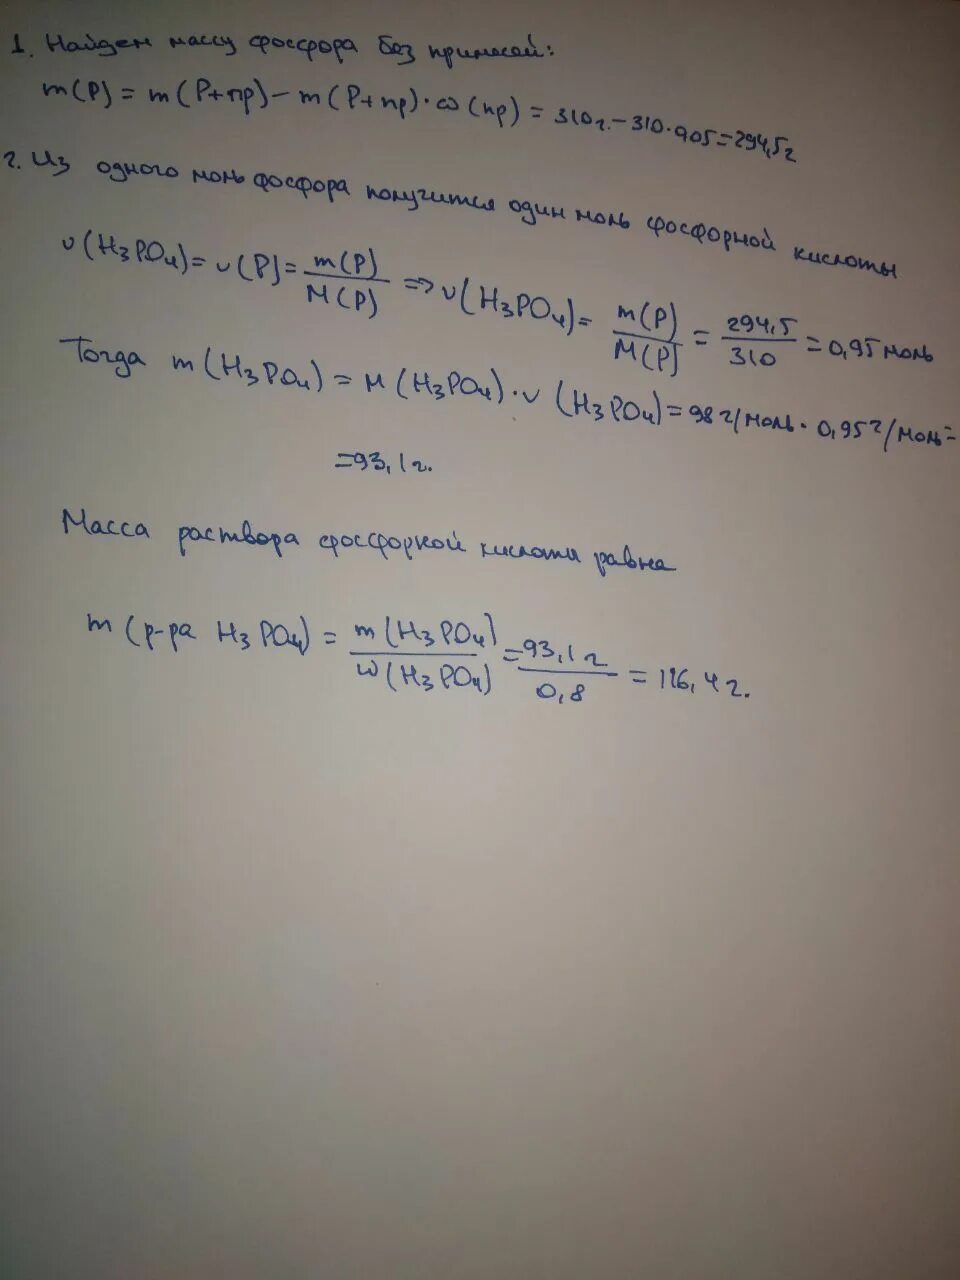 1. Найдем массу фосфора без примесей:
m(P) = m(P+пр) - m(P+пр)·ω(пр) = 310г. - 310·0,05 = 294,5г
2. Из одного моль фосфора получится один моль фосфорной кислоты
υ(H₃PO₄) = υ(P) = m(P)/M(P) => υ(H₃PO₄) = m(P)/M(P) = 294,5/310 = 0,95 моль
Тогда m(H₃PO₄) = M(H₃PO₄)·υ(H₃PO₄) = 98 г/моль · 0,95 г/моль =
= 93,1 г.
Масса раствора фосфорной кислоты равна
m(р-ра H₃PO₄) = m(H₃PO₄)/ω(H₃PO₄) = 93,1 г/0,8 = 116,4 г.